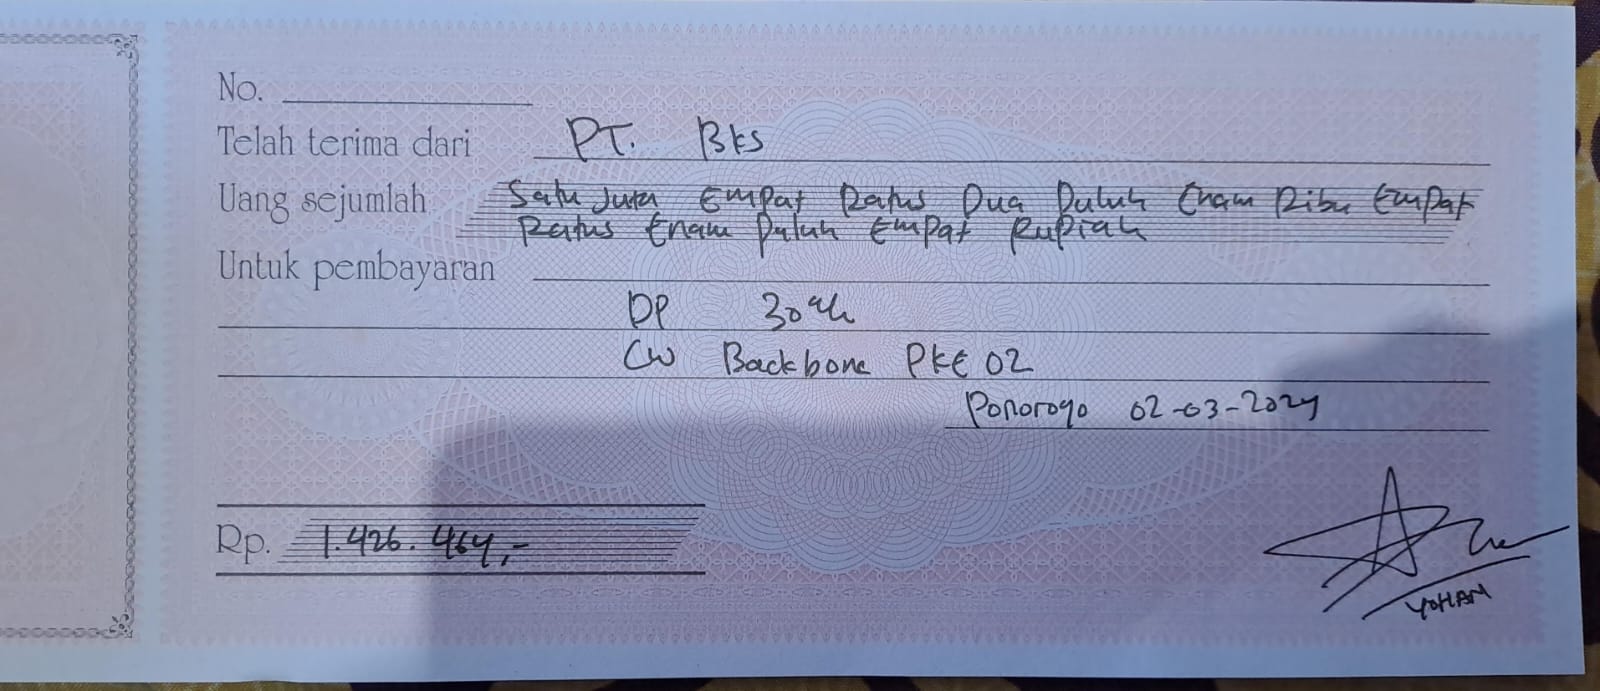 No.
Telah terima dari PT. BKS
Uang sejumlah Satu Juta Empat Ratus Dua Puluh Enam Ribu Empat
Ratus Enam Puluh Empat Rupiah
Untuk pembayaran
DP 30%
CW Backbone PKE 02
Ponorogo 02-03-2024
Rp. 1.426.464,-
YOHAN